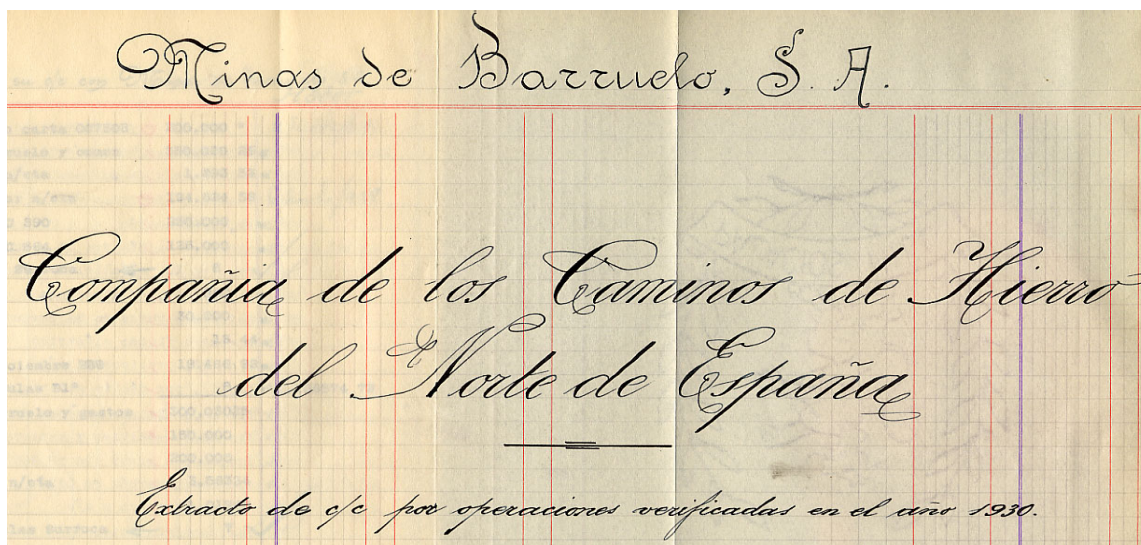 Minas de Barruelo, S. A.
Compañia de los Caminos de Hierro
del Norte de España
Extracto de c/c por operaciones verificadas en el año 1930.